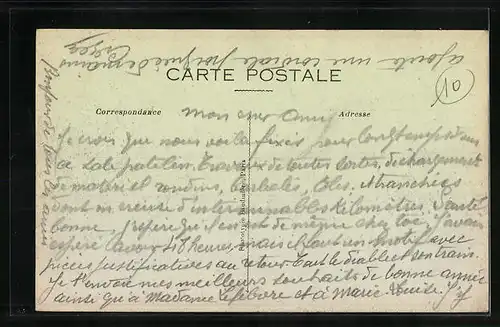 ajoute une cordiale poignée de mains
CARTE POSTALE
10
Correspondance
Adresse
mon cher ami
Je crois que nous voilà fixés pour longtemps dans
ce sale patelin. Travaux de toutes sortes, déchargement
de matériel rondins, barbelés, tôles, et tranchées
dont on creuse d'interminables kilomètres. Santé
bonne j'espère qu'il en est de même chez toi. J'avais
espéré t'avoir 48 heures mais il faut un motif avec
pièces justificatives au retour. Tout le diable et son train.
Je t'envoie mes meilleurs souhaits de bonne année
ainsi qu'à Madame Lefebvre et à Marie-Louise.